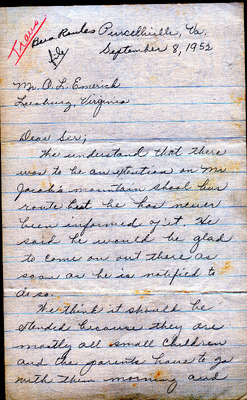 Trans
Bus Routes Purcellville, Va.
file September 8, 1952
Mr. O. L. Emerick
Leesburg, Virginia
Dear Sir;
We understand that there
was to be an extention on Mr
Jacob's mountain shool bus
route but he has never
been informed of it. He
said he would be glad
to come on out there as
soon as he is notified to
do so.
We think it should be
extended because they are
mostly all small children
and the parents have to go
with them morning and